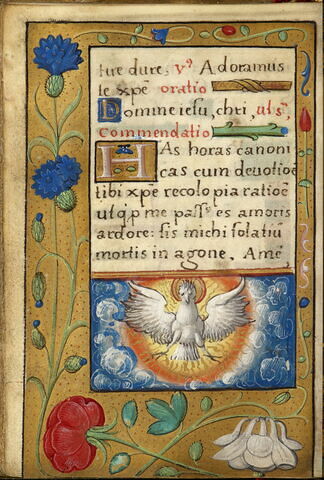 ture dure, ꝟ Adoramus
te xp̄e oratio
Domine iesu, chri, ut sͣ.
Commendatio
HAs horas canoni
cas cum deuotiōe
tibi xp̄e recolo pia ratiōe
ut q̄ p me pass᾽ es amoris
ardore: sis michi solatiū
mortis in agone. Amē